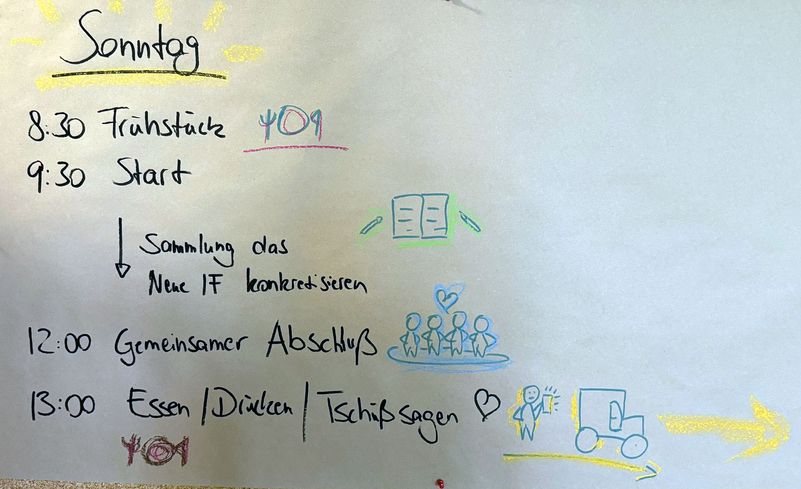 Sonntag
8:30 Frühstück
9:30 Start
Sammlung das
Neue IF konkretisieren
12:00 Gemeinsamer Abschluß
13:00 Essen / Drücken / Tschüßsagen